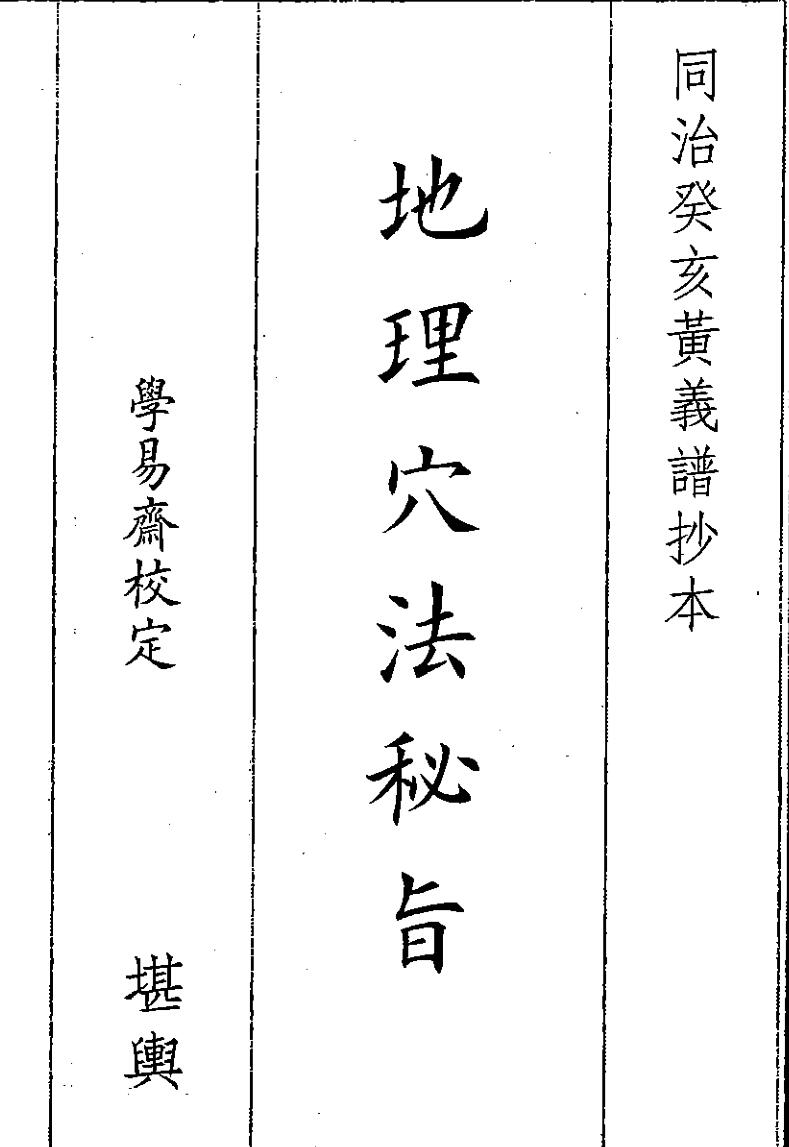 同治癸亥黃義譜抄本
地理穴法秘旨
學易齋校定
堪輿